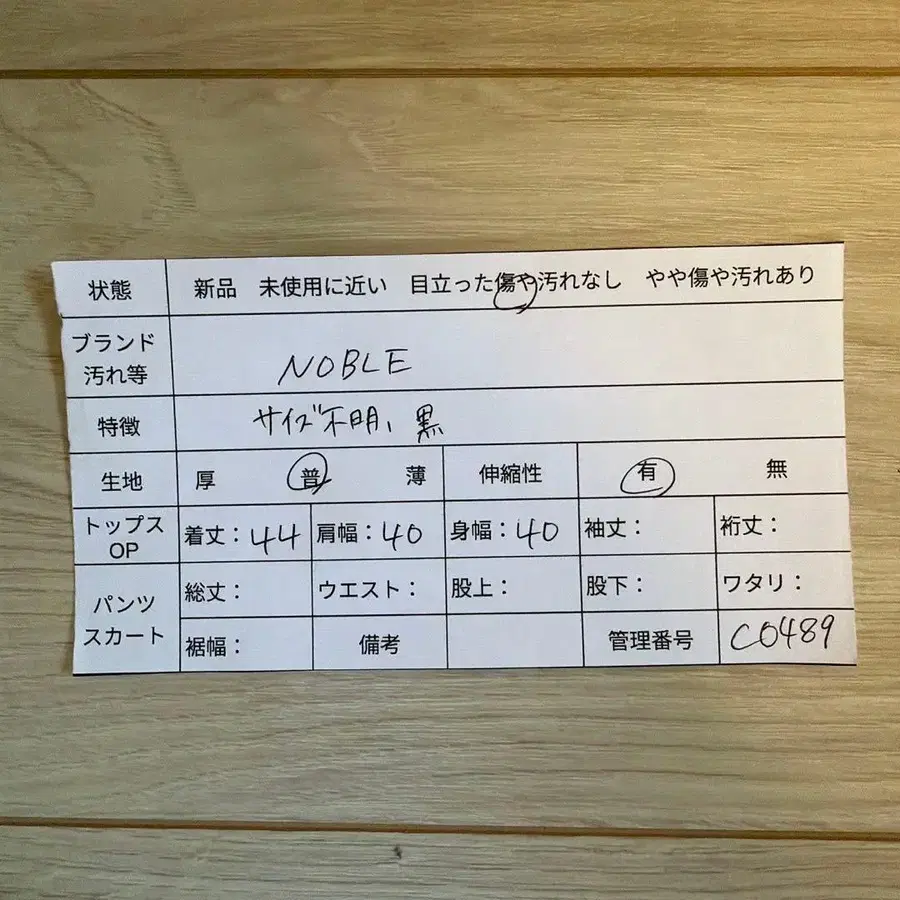 状態 新品 未使用に近い 目立った傷や汚れなし やや傷や汚れあり
ブランド
汚れ等
NOBLE
特徴 サイズ不明、黒
生地 厚 普 薄 伸縮性 有 無
トップス
OP
着丈：44 肩幅：40 身幅：40 袖丈： 裄丈：
パンツ
スカート
総丈： ウエスト： 股上： 股下： ワタリ：
裾幅： 備考 管理番号 C0489